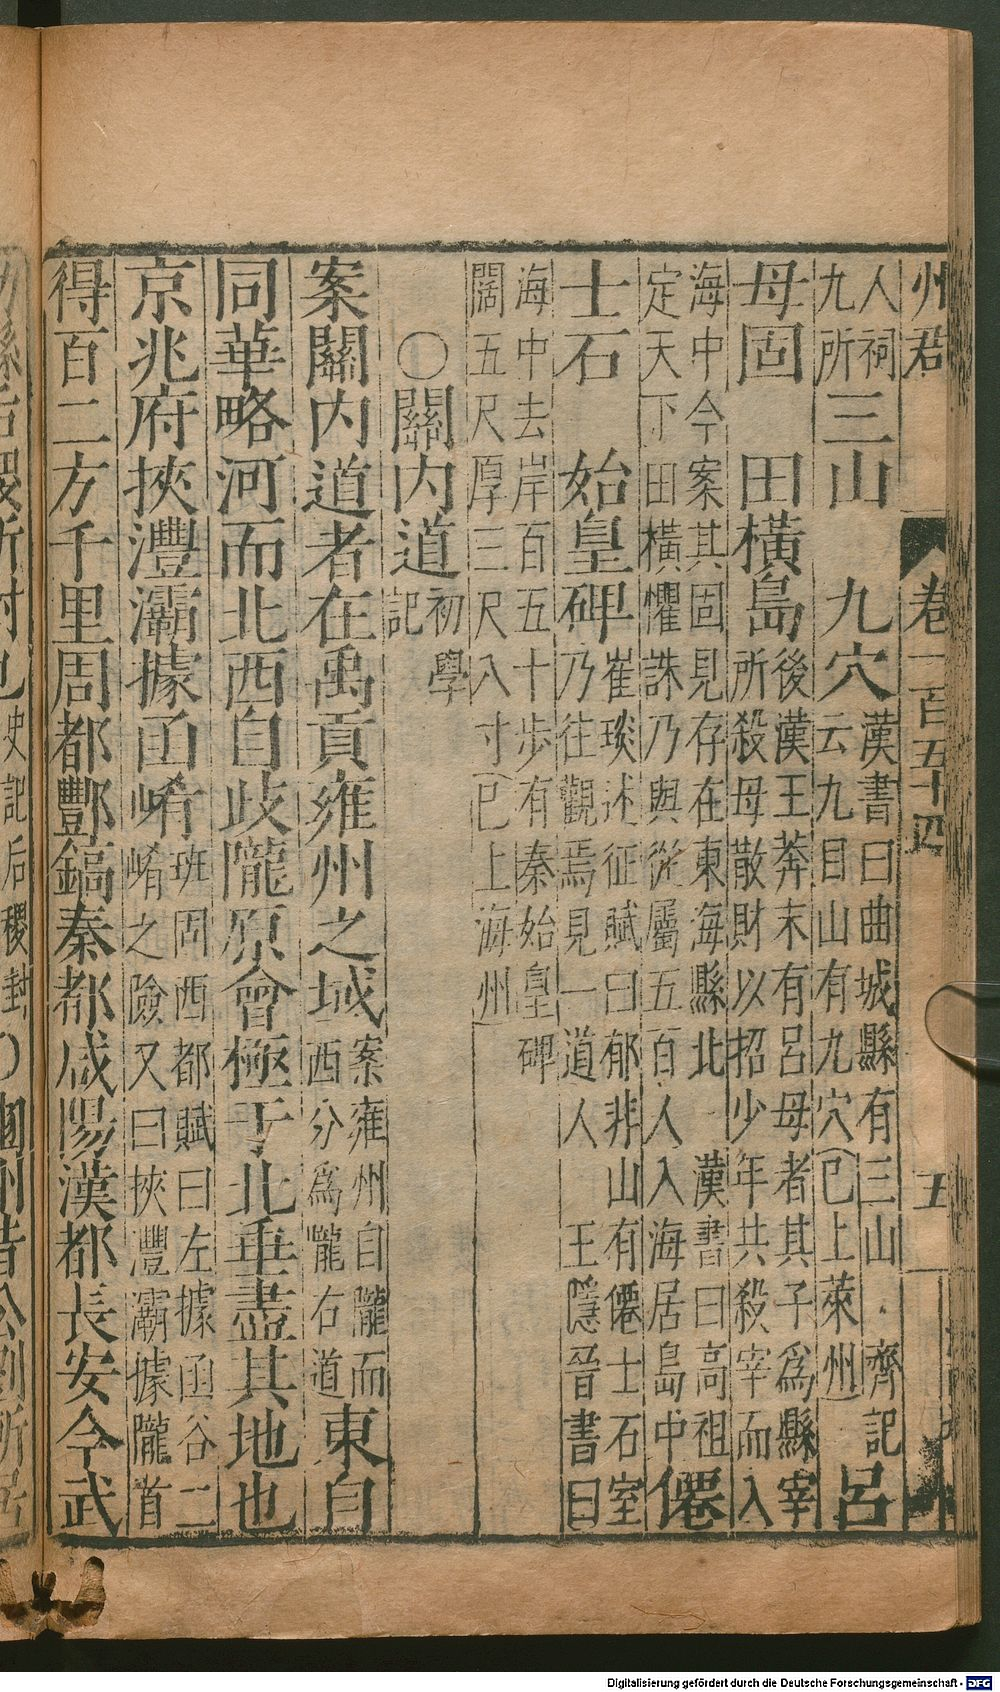 州君 卷一百五十四 五
人祠九所三山 九穴漢書曰曲城縣有三山 齊記云九目山有九穴(已上萊州)呂
母固 田橫島後漢王莽末有呂母者其子為縣宰所殺母散財以招少年共殺宰而入
海中今案其固見存在東海縣北 漢書曰高祖定天下田橫懼誅乃與從屬五百人入海居島中僊
士石 始皇碑崔琰述征賦曰郁非山有僊士石室乃往觀焉見一道人 王隱晉書曰
海中去岸百五十步有秦始皇碑闊五尺厚三尺八寸(已上海州)
○關內道初學記
案關內道者在禹貢雍州之域案雍州自隴而西分為隴右道東自
同華略河而北西自岐隴原會極于北垂盡其地也
京兆府挾灃灞據函崤班固西都賦曰左據函谷二崤之險又曰挾灃灞據隴首
得百二方千里周都酆鎬秦都咸陽漢都長安今武
Digitalisierung gefördert durch die Deutsche Forschungsgemeinschaft - DFG